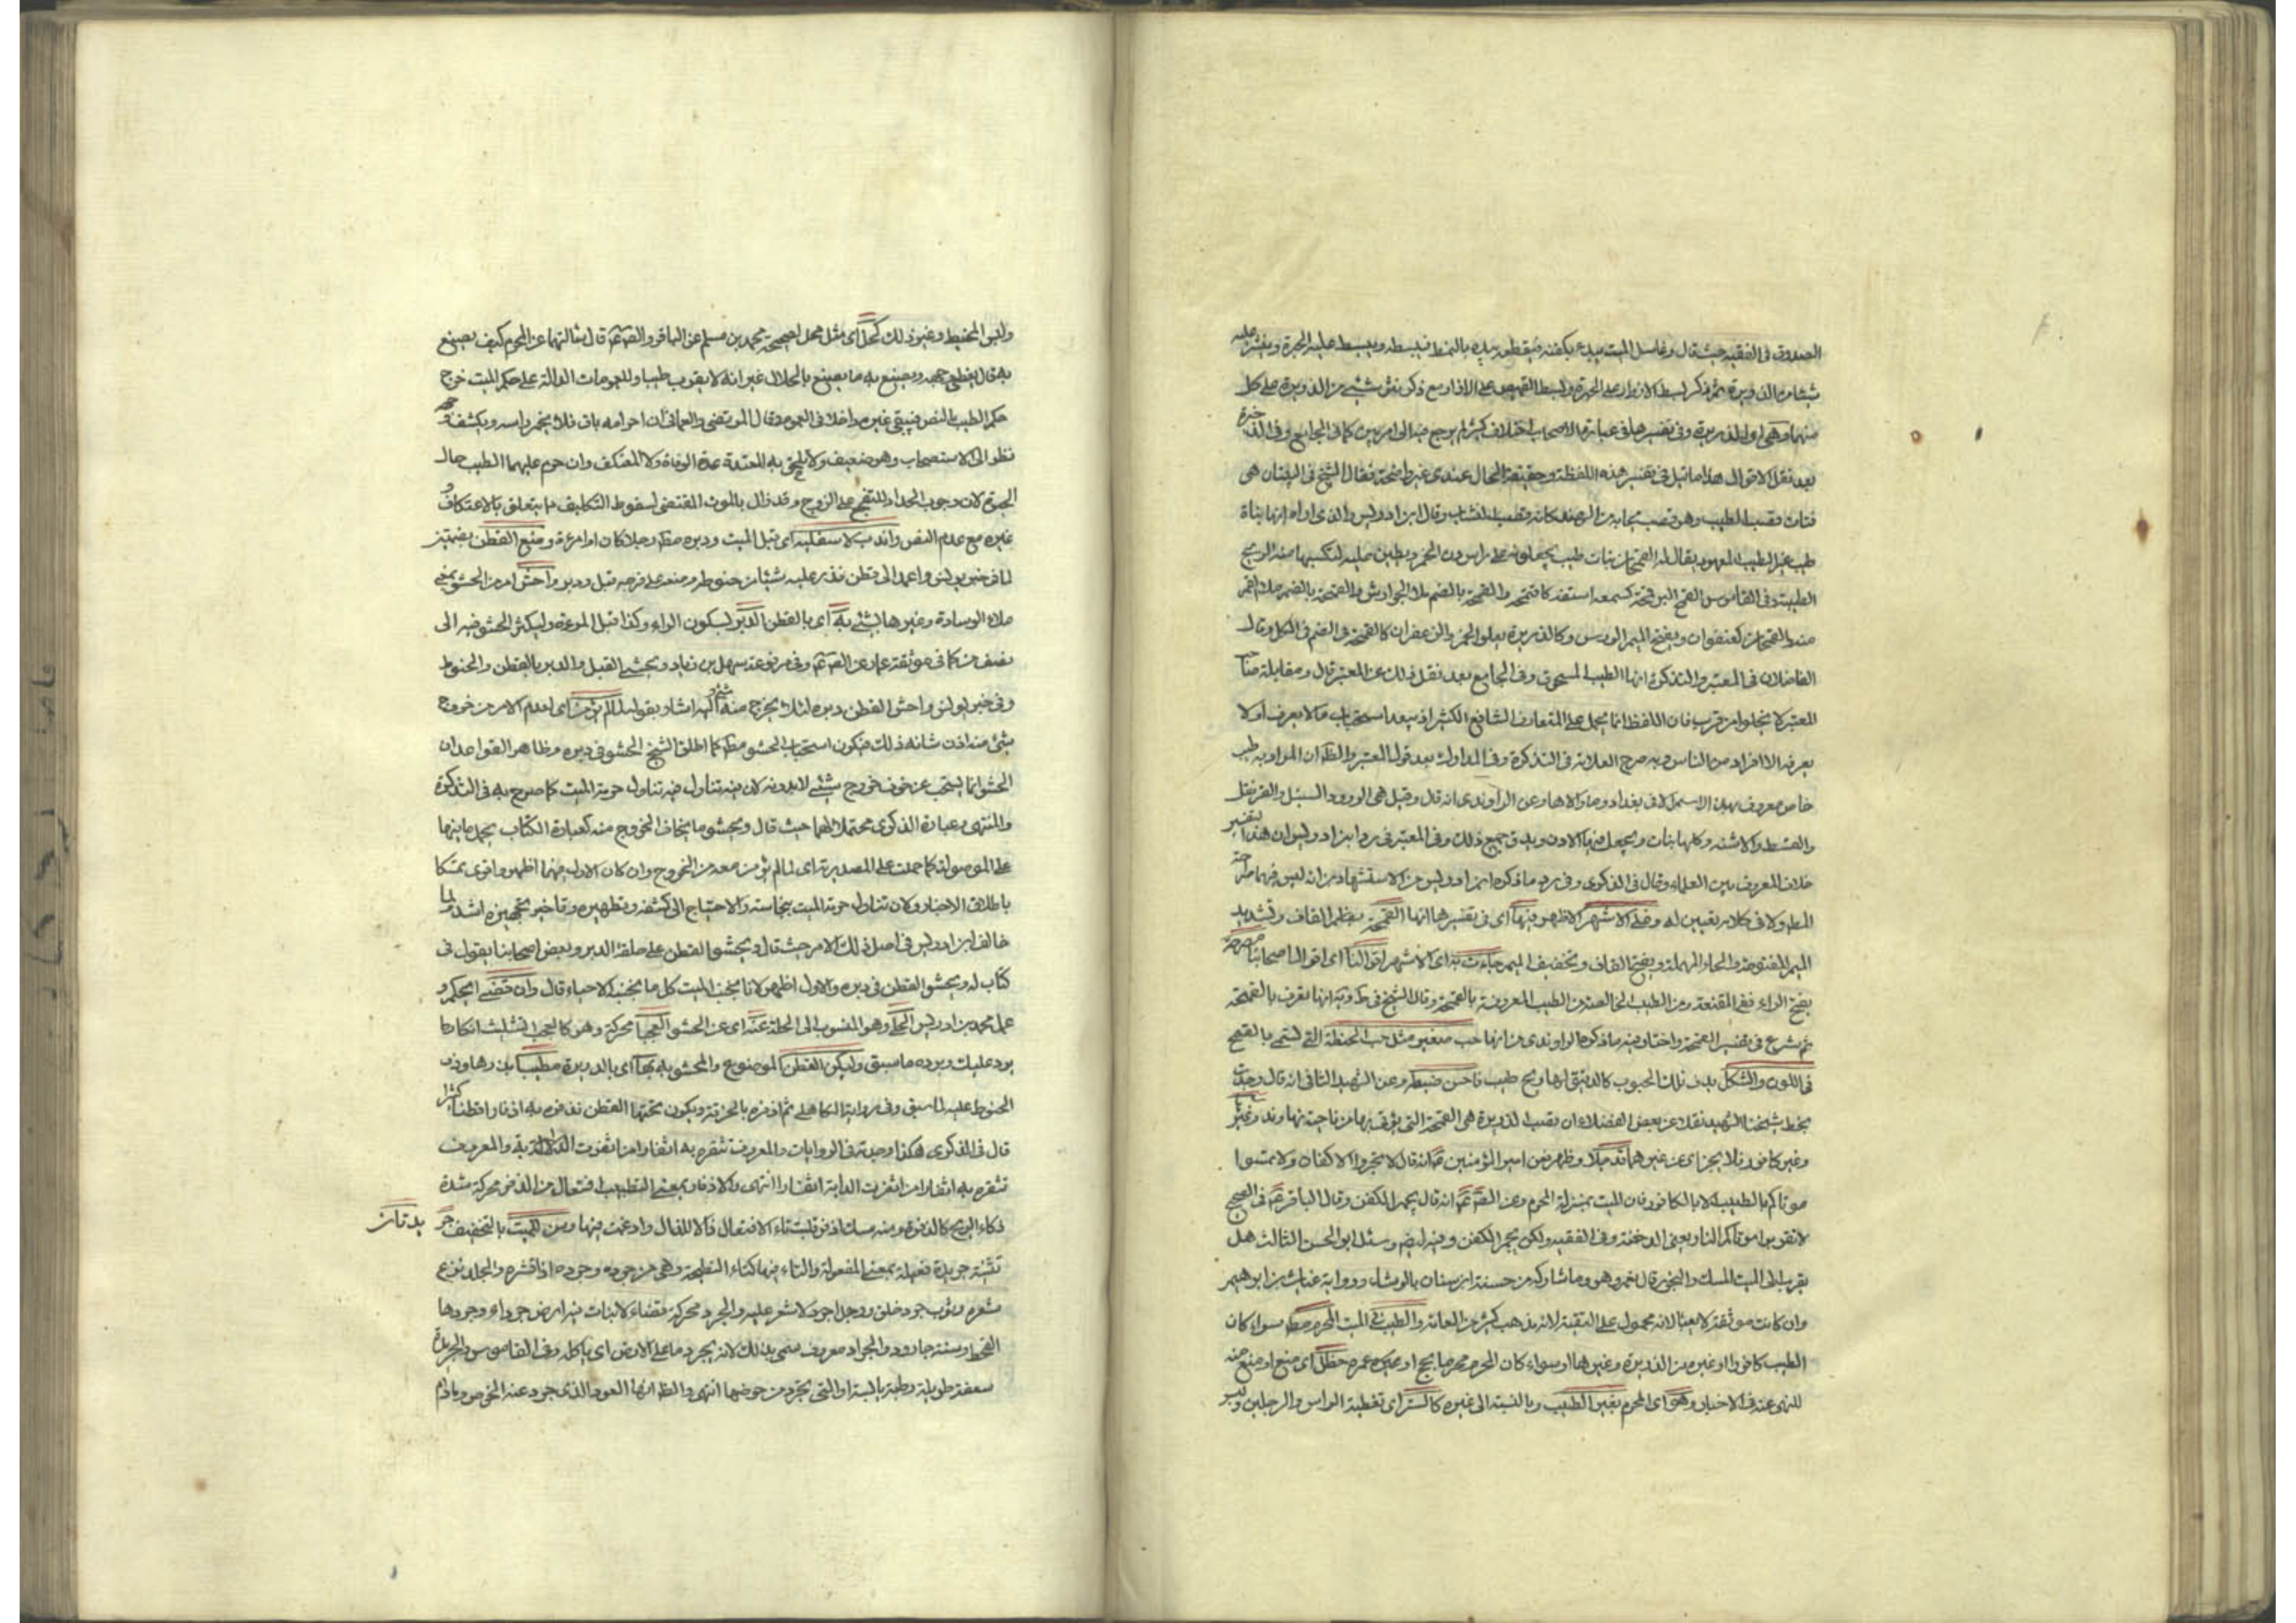 الصدوق في الفقيه حيث قال وغاسل الميت يبدء بكفنه فيقطعه يبدء بالنمط فيبسطه ويبسط عليه الحبرة وينثر عليه
شيئا من الذريرة ثم ذكر بسط الازار على الحبرة وبسط القميص على الازار مع ذكر نثر شيئ من الذريرة على كل
منهما وهي اي الذريرة وفي تفسيرها في عبارة الاصحاب اختلاف كثير لم يرجع فيه الى امر بين كما في الجامع وفي الذخيرة
بعد نقل الاقوال هذا ما قيل في تفسير هذه اللفظة وحقيقة الحال عندي غير واضحة فقال الشيخ في التبيان هي
فتات قصب الطيب وهو قصب يجاء به من الهند كانه قصب النشاب وقال ابن ادريس والذي اراه انها نبات
طيب غير الطيب المعهود يقال له القمحان نبات طيب يجعلونه على راس دن الخمر ويطين عليه لتكسبها منه الريح
الطيبة وفي القاموس القمح البر قمحه كسمعه استفه كاقتمحه والقمحة بالضم ملا الجوارش والقمحة بالضم ملا الفم
منه والقمحان كعنفوان ويفتح الميم الورس وكالذريرة يعلو الخمر والزعفران كالقمحة في الضم في الكل وقال
الفاضلان في المعتبر والتذكرة انها الطيب المسحوق وفي الجامع بعد نقل ذلك عن المعتبر قال ومقابلة صاحب
المعتبر لا يخلوا من قرب فان اللفظ انما يحمل على المتعارف الشائع الكثير اذ يبعد استحباب ما لا يعرف او لا
يعرفه الا افراد من الناس وبه صرح العلامة في التذكرة وفي المدارك بعد قول المعتبر والظ ان المراد به طيب
خاص معروف بهذا الاسم الان في بغداد وما والاها وعن الراوندي انه قال وقيل هي الورد والسنبل والقرنفل
والقسط والاشنه وكلها نبات ويجعل فيها اللادن ويدق جميع ذلك وفي المعتبر في رد ابن ادريس ان هذا التفسير
خلاف المعروف بين العلماء وقال في الذكرى وفي رد ما ذكره ابن ادريس من الاستشهاد من انه ليس فيهما صراحة
المط ولا في كلامه تعيين له وعلى الاشهر الاظهر بينها اي في تفسيرها انها القمحة بضم القاف وتشديد
الميم المفتوحة والحاء المهملة وبفتح القاف وتخفيف الميم جاءت به اي الاشهر اقوالنا اي اقوال اصحابنا مصرحة
بفتح الراء ففي المقنعة ومن الطيب الخالصة من الطيب المعروفة بالقمحة وقال الشيخ في ط ويه انها تعرف بالقمحة
ثم شرع في تفسير القمحة واختار فيه ما ذكره الراوندي من انها حب صغير مثل حب الحنطة التي تسمى بالقمح
في اللون والشكل يدق تلك الحبوب كالدقيق لها ريح طيب فاحسن ضبطه وعن الشهيد الثاني انه قال وجدت
بخط شيخنا الشهيد نقلا عن بعض الفضلاء ان قصب الذريرة هي القمحة التي يؤتى بها من ناحية نهاوند وغيرها
وغير كافور فلا يجزي عن غيرهما تدجيلا وظهر من امير المؤمنين ع انه قال لا تجمروا الاكفان ولا تمسوا
موتاكم بالطيب الا بالكافور فان الميت بمنزلة المحرم وعن الص ع انه قال يجمر الكفن وقال الباقر ع في الصحيح
لا تقربوا موتاكم النار يعني الدخنة وفي الفقيه ولكن يجمر الكفن وفيه ايضا وسئل ابو الحسن الثالث هل
يقرب الى الميت المسك والبخور قال نعم وهو وما شاركه من حسنة ابن سنان بالوشاء ورواية غياث بن ابراهيم
وان كانت موثقة لا يعبأ لانه محمول على التقية لانه مذهب كثير من العامة والطيب في الميت المحرم مط سواء كان
الطيب كافورا او غيره من الذريرة وغيرها او سواء كان المحرم محرما بحج او عمرة حظل اي منع او منع منه
للنهي عنه في الاخبار وهو اي المحرم بغير الطيب وبالنسبة الى غيره كالستر اي تغطية الراس والرجلين ولبس
ولبس المخيط وغير ذلك كحل اي مثل محل لصحيحة محمد بن مسلم عن الباقر والص ع قال سالتهما عن المحرم كيف يصنع
به قال يغطى وجهه ويصنع به ما يصنع بالحلال غير انه لا يقرب طيبا وللعمومات الدالة على حكم الميت خرج
حكم الطيب بالنص فيبقى غيره داخلا في العموم وقال المرتضى والعماني ان احرامه باق فلا يخمر راسه ويكشف وجهه
نظر الى الاستصحاب وهو ضعيف ولا يلحق به المعتدة عدة الوفاة ولا المعتكف وان حرم عليهما الطيب حال
الحيوة لان وجوب الحداد للتفجع على الزوج وقد زال بالموت المقتضي لسقوط التكليف ما يتعلق بالاعتكاف و
غيره مع عدم النص واندب لاسفليه اي قبل الميت ودبره مط رجلا كان او امرءة وضع القطن بضمتين
لما في خبر يونس واعمد الى قطن فذر عليه شيئا من حنوط وضعه على فرجه قبل ودبر واحش امر من الحشو بمعنى
ملاء الوسادة وغيرها بشئ به اي بالقطن الدبر بسكون الراء وكذا قبل المرءة وليكثر الحشو فيه الى
نصف من كما في موثقة عمار عن الص ع وفي مرفوعة سهل بن زياد ويحشى القبل والدبر بالقطن والحنوط
وفي خبر يونس واحش القطن دبره لئلا يخرج منه شئ واليه اشار بقوله ليؤمن اي لعدم الامر من خروج
شئ منه اذن شانه ذلك فيكون استحباب الحشو مط كما اطلق الشيخ الحشو في دبره وظاهر القواعد ان
الحشو انما يستحب عند خوف خروج شيئ لا بدونه لان فيه تناول فيه تناول حرمة الميت كما صرح به في التذكرة
والمنتهى وعبارة الذكرى محتملا لهما حيث قال ويحشو ما يخاف الخروج منه كعبارة الكتاب بحمل ما فيها
على الموصولة كما حملت على المصدرية اي لما لم يؤمن معه من الخروج وان كان الاول منهما اظهر واقوى تمسكا
باطلاق الاخبار ولان تناول حرمة الميت بنجاسته والاحتياج الى كشفه وتطهيره وتاخير تجهيزه اشد ولما
خالف ابن ادريس في اصل ذلك الامر حيث قال ويحشو القطن على حلقة الدبر وبعض اصحابنا يقول في
كتاب له ويحشو القطن في دبره والاول اظهر لانا نجنب الميت كل ما نجنب الاحياء قال وان قضى الحكم و
عمل محمد بن ادريس الحلي وهو المنسوب الى الحلة عنه اي عن الحشو العجبا محركة وهو كالعجب بتثليث انكار ما
يرد عليك ويرده ما سبق وليكن القطن الموضوع والمحشو به بها اي بالذريرة مطيبا بذرها وذر
الحنوط عليه لما سبق وفي رواية الكاهلي ثم اذفره بالخرقة ويكون تحتها القطن تذفره به اذفارا قطنا كثيرا
قال في الذكرى هكذا وجدته في الروايات والمعروف تثفره به اثفارا من اثفرت الدابة والمعروف
تثفره به اثفارا من اثفرت الدابة اثفارا انتهى والاذفار بمعنى التطييب افتعال من الذفر محركة شدة
ذكاء الريح كالذفرة ومنه مسك اذفر قلبت تاء الافتعال ذالا للذال وادغمت فيها وسن للميت بالتخفيف جر
يدتان
تثنية جريدة فعيلة بمعنى المفعولة والتاء فيها كتاء النطيحة وهي من جرده وجرده اذا قشره والجلد نزع
شعره وثوب جرد خلق ورجل اجرد لا شعر عليه والجرد محركة فضاء لا نبات فيه ارض جرداء وجردها
القحط وسنة جارود والجراد معروف سمي بذلك لانه يجرد ما على الارض اي ياكله وفي القاموس والجريدة
سعفة طويلة رطبة يابسة او التي تجرد من خوصها انتهى والظ انها العود الذي جرد عنه الخوص وما دام